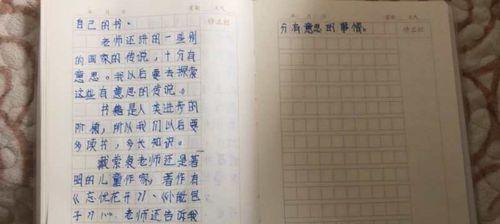 自己的书。
老师还讲的一些别
的国家的传说，十分有
意思。我以后要去探索
这些有意思的传说。
书籍是人类进步的
阶梯，所以我们以后要
多读书，多长知识。
戴索良老师还是著
明的儿童作家，著作有
《忘忧花开了》、《小熊包
子》……老师还告诉我
分有意思的事情。